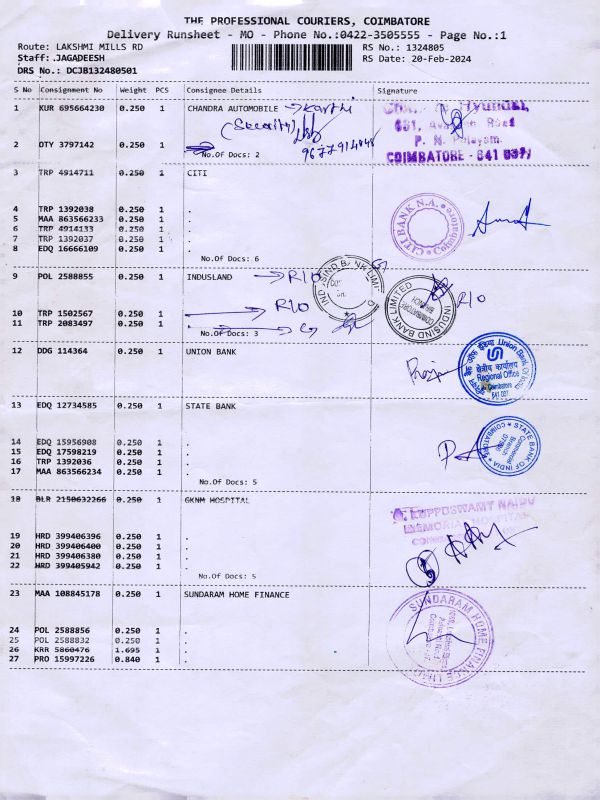 THE PROFESSIONAL COURIERS, COIMBATORE
Delivery Runsheet - MO - Phone No.:0422-3505555 - Page No.:1
Route: LAKSHMI MILLS RD RS No.: 1324805
Staff: .JAGADEESH RS Date: 20-Feb-2024
DRS No.: DCJB132480501
S No Consignment No Weight PCS Consignee Details Signature
1 KUR 695664230 0.250 1 CHANDRA AUTOMOBILE → Karthi
(Security)
Hyundai,
Road
P. N. Palayam
COIMBATORE - 641 037
2 DTY 3797142 0.250 1
No.Of Docs: 2
3 TRP 4914711 0.250 1 CITI
4 TRP 1392038 0.250 1 .
5 MAA 863566233 0.250 1 .
6 TRP 4914133 0.250 1 .
7 TRP 1392037 0.250 1 .
8 EDQ 16666109 0.250 1 .
No.Of Docs: 6
CITI BANK N.A. Coimbatore
9 POL 2588855 0.250 1 INDUSLAND → R10
10 TRP 1502567 0.250 1 → R10
11 TRP 2083497 0.250 1
No.Of Docs: 3
INDUSIND BANK LIMITED
INDUSIND BANK LIMITED
COIMBATORE BRANCH
R10
12 DDG 114364 0.250 1 UNION BANK
Union Bank Of India
क्षेत्रीय कार्यालय
Regional Office
Coimbatore
641 037
13 EDQ 12734585 0.250 1 STATE BANK
14 EDQ 15956908 0.250 1 .
15 EDQ 17598219 0.250 1 .
16 TRP 1392036 0.250 1 .
17 MAA 863566234 0.250 1 .
No.Of Docs: 5
STATE BANK OF INDIA COIMBATORE
Commercial
Branch
18 BLR 2150632266 0.250 1 GKNM HOSPITAL
KUPPUSWAMY NAIDU
MEMORIAL HOSPITAL
19 HRD 399406396 0.250 1 .
20 HRD 399406400 0.250 1 .
21 HRD 399406380 0.250 1 .
22 HRD 399405942 0.250 1 .
No.Of Docs: 5
23 MAA 108845178 0.250 1 SUNDARAM HOME FINANCE
24 POL 2588856 0.250 1 .
25 POL 2588832 0.250 1 .
26 KRR 5860476 1.695 1 .
27 PRO 15997226 0.840 1 .
SUNDARAM HOME FINANCE LIMITED